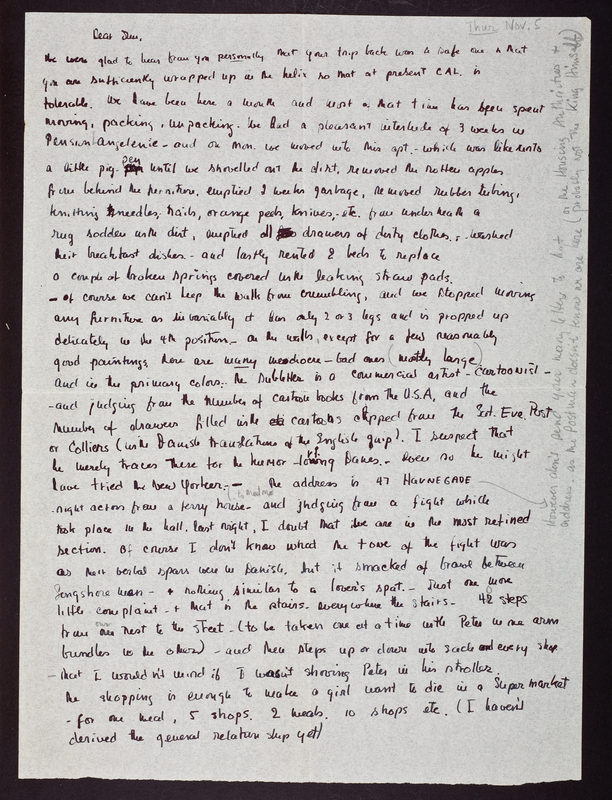 Thur Nov. 5
Dear Jim,
We were glad to hear from you personally that your trip back was a safe one & that
you are sufficiently wrapped up in the helix so that at present CAL. is
tolerable. We have been here a month and most of that time has been spent
moving, packing, unpacking. We had a pleasant interlude of 3 weeks in
Pension Angelenie - and on Mon. we moved into this apt. - which was like
a little pig pen until we shovelled out the dirt, removed the rotten apples
from behind the furniture, emptied 2 weeks garbage, removed rubber tubing,
knitting needles, nails, orange peels, knives, etc. from underneath a
rug sodden with dirt, emptied drawers of dirty clothes, washed
their breakfast dishes - and lastly rented 2 beds to replace
a couple of broken springs covered with leaking straw pads.
- of course we can't keep the walls from crumbling, and we stopped moving
any furniture as invariably it has only 2 or 3 legs and is propped up
delicately in the 4th position. - On the walls, except for a few reasonably
good paintings, there are many mediocre - bad ones (mostly large)
and in the primary colors. The is a commercial artist - cartoonist -
- and judging from the number of cartoon books from the U.S.A, and the
number of drawers filled with cartoons clipped from the Sat. Eve. Post
or Colliers (with Danish translations of the English quip). I suspect that
he merely traces these for the humor - loving Danes. - Even so he might
have tried the New Yorker. - The address is 47 HAVNEGADE
right across from a ferry house - and judging from a fight which
took place in the hall last night, I doubt that we are in the most refined
section. Of course I don't know what the tone of the fight was
as their verbal spars were in Danish, but it smacked of brawl between
longshore men - & nothing similar to a lover's spat. - Just one more
little complaint - & that is the stairs - everywhere the stairs - 42 steps
from our nest to the street - (to be taken one at a time with Peter in one arm
bundles in the other) - and then steps up or down into each and every shop
- that I wouldn't mind if I wasn't shoving Peter in his stroller.
The shopping is enough to make a girl want to die in a Super market
- for one meal, 5 shops. 2 meals, 10 shops etc. (I haven't
derived the general relationship yet)
However don't send your many letters to that
address - as the postman doesn't know we are here (probably not the King Himself)
or the Housing Authorities &